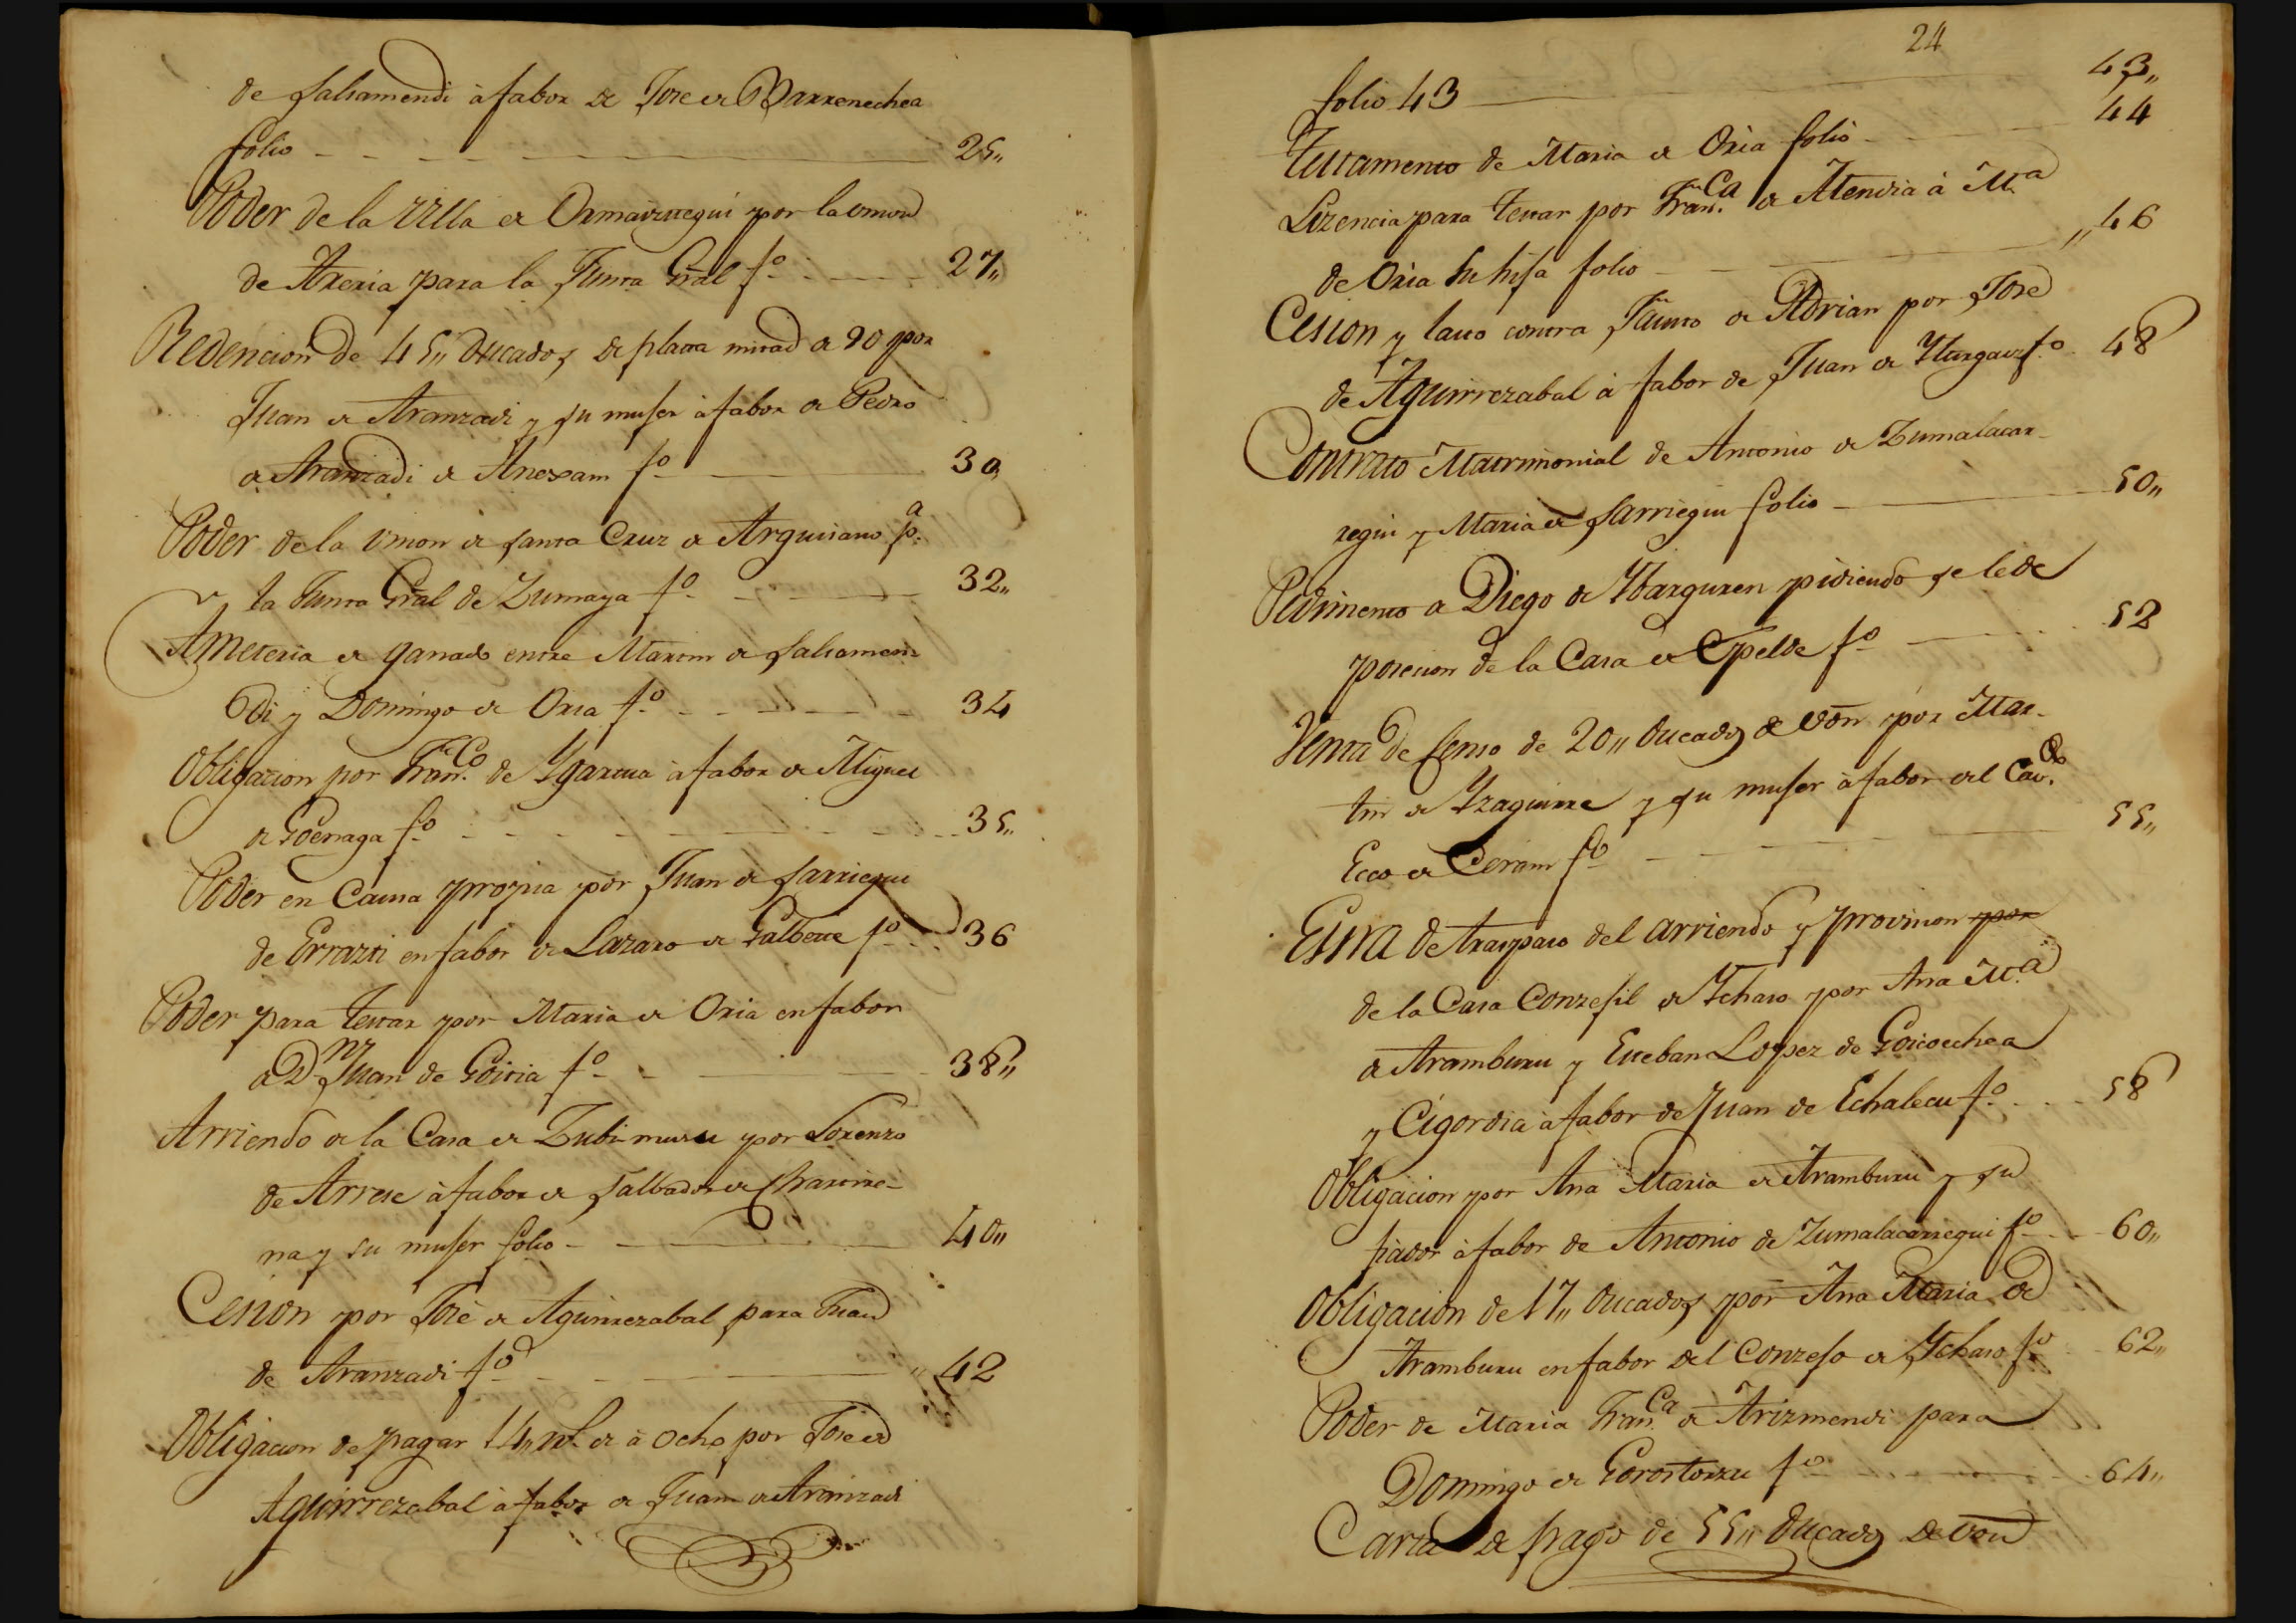 de Salsamendi à fabor de Jose de Barrenechea
folio 25,,
Poder de la Villa de Ormaiztegui por la Vnion
de Areria para la Junta Gral fº 27,,
Redencion de 45,, Ducados de plata mitad de 90 por
Juan de Aranzadi y su muger à fabor de Pedro
de Aranzadi de Anexam fº 30,
Poder de la Vnion de Santa Cruz de Arguisano pª
la Junta Gral de Zumaya fº 32,,
Ameteria de ganado entre Martin de Salsamen-
di y Domingo de Oria fº 34
Obligazion por Franco. de Ygartua à fabor de Miguel
de Goenaga fº 35,,
Poder en Causa propia por Juan de Sarriegui
de Errazti en fabor de Lazaro de Galbete fº 36
Poder para testar por Maria de Oria en fabor
de Dn Juan de Goitia fº 38,,
Arriendo de la Casa de Zubi-musu por Lorenzo
de Arrese à fabor de Salbador de Charirre-
na y su muger folio 40,,
Cesion por José de Aguirrezabal para Juan
de Aranzadi fº ,, 42
Obligacion de pagar 14,, rs. de à ocho por Jose de
Aguirrezabal à fabor de Juan de Aranzadi
24
folio 43 43,,
Testamento de Maria de Oria folio 44
Lizencia para testar por Franca. de Atendia à Mª
de Oria su hija folio ,, 46
Cesion y lasto contra Justo de Adrian por José
de Aguirrezabal à fabor de Juan de Yturgaiz fº 48
Contrato Matrimonial de Antonio de Zumalacar-
regui y Maria de Sarriegui folio 50,,
Pedimento de Diego de Ybarguren pidiendo se le de
posesion de la Casa de Epelde fº 52
Venta de Censo de 20,, Ducados de von por Mar-
tin de Yzaguirre y su muger à fabor del Cavdo.
Ecco de Cerain fº 55,,
Essra de traspaso del arriendo y provision por
de la Casa Conzegil de Ychaso por Ana Mª
de Aramburu y Esteban Lopez de Goicoechea
y Cigordia à fabor de Juan de Echalecu fº 58
Obligacion por Ana Maria de Aramburu y su
fiador à fabor de Antonio de Zumalacarregui fº 60,,
Obligacion de 17,, Ducados por Ana Maria de
Aramburu en fabor del Conzejo de Ychaso fº 62,,
Poder de Maria Franca. de Arizmendi para
Domingo de Gorostorzu fº 64,,
Carta de pago de 55,, Ducados de von